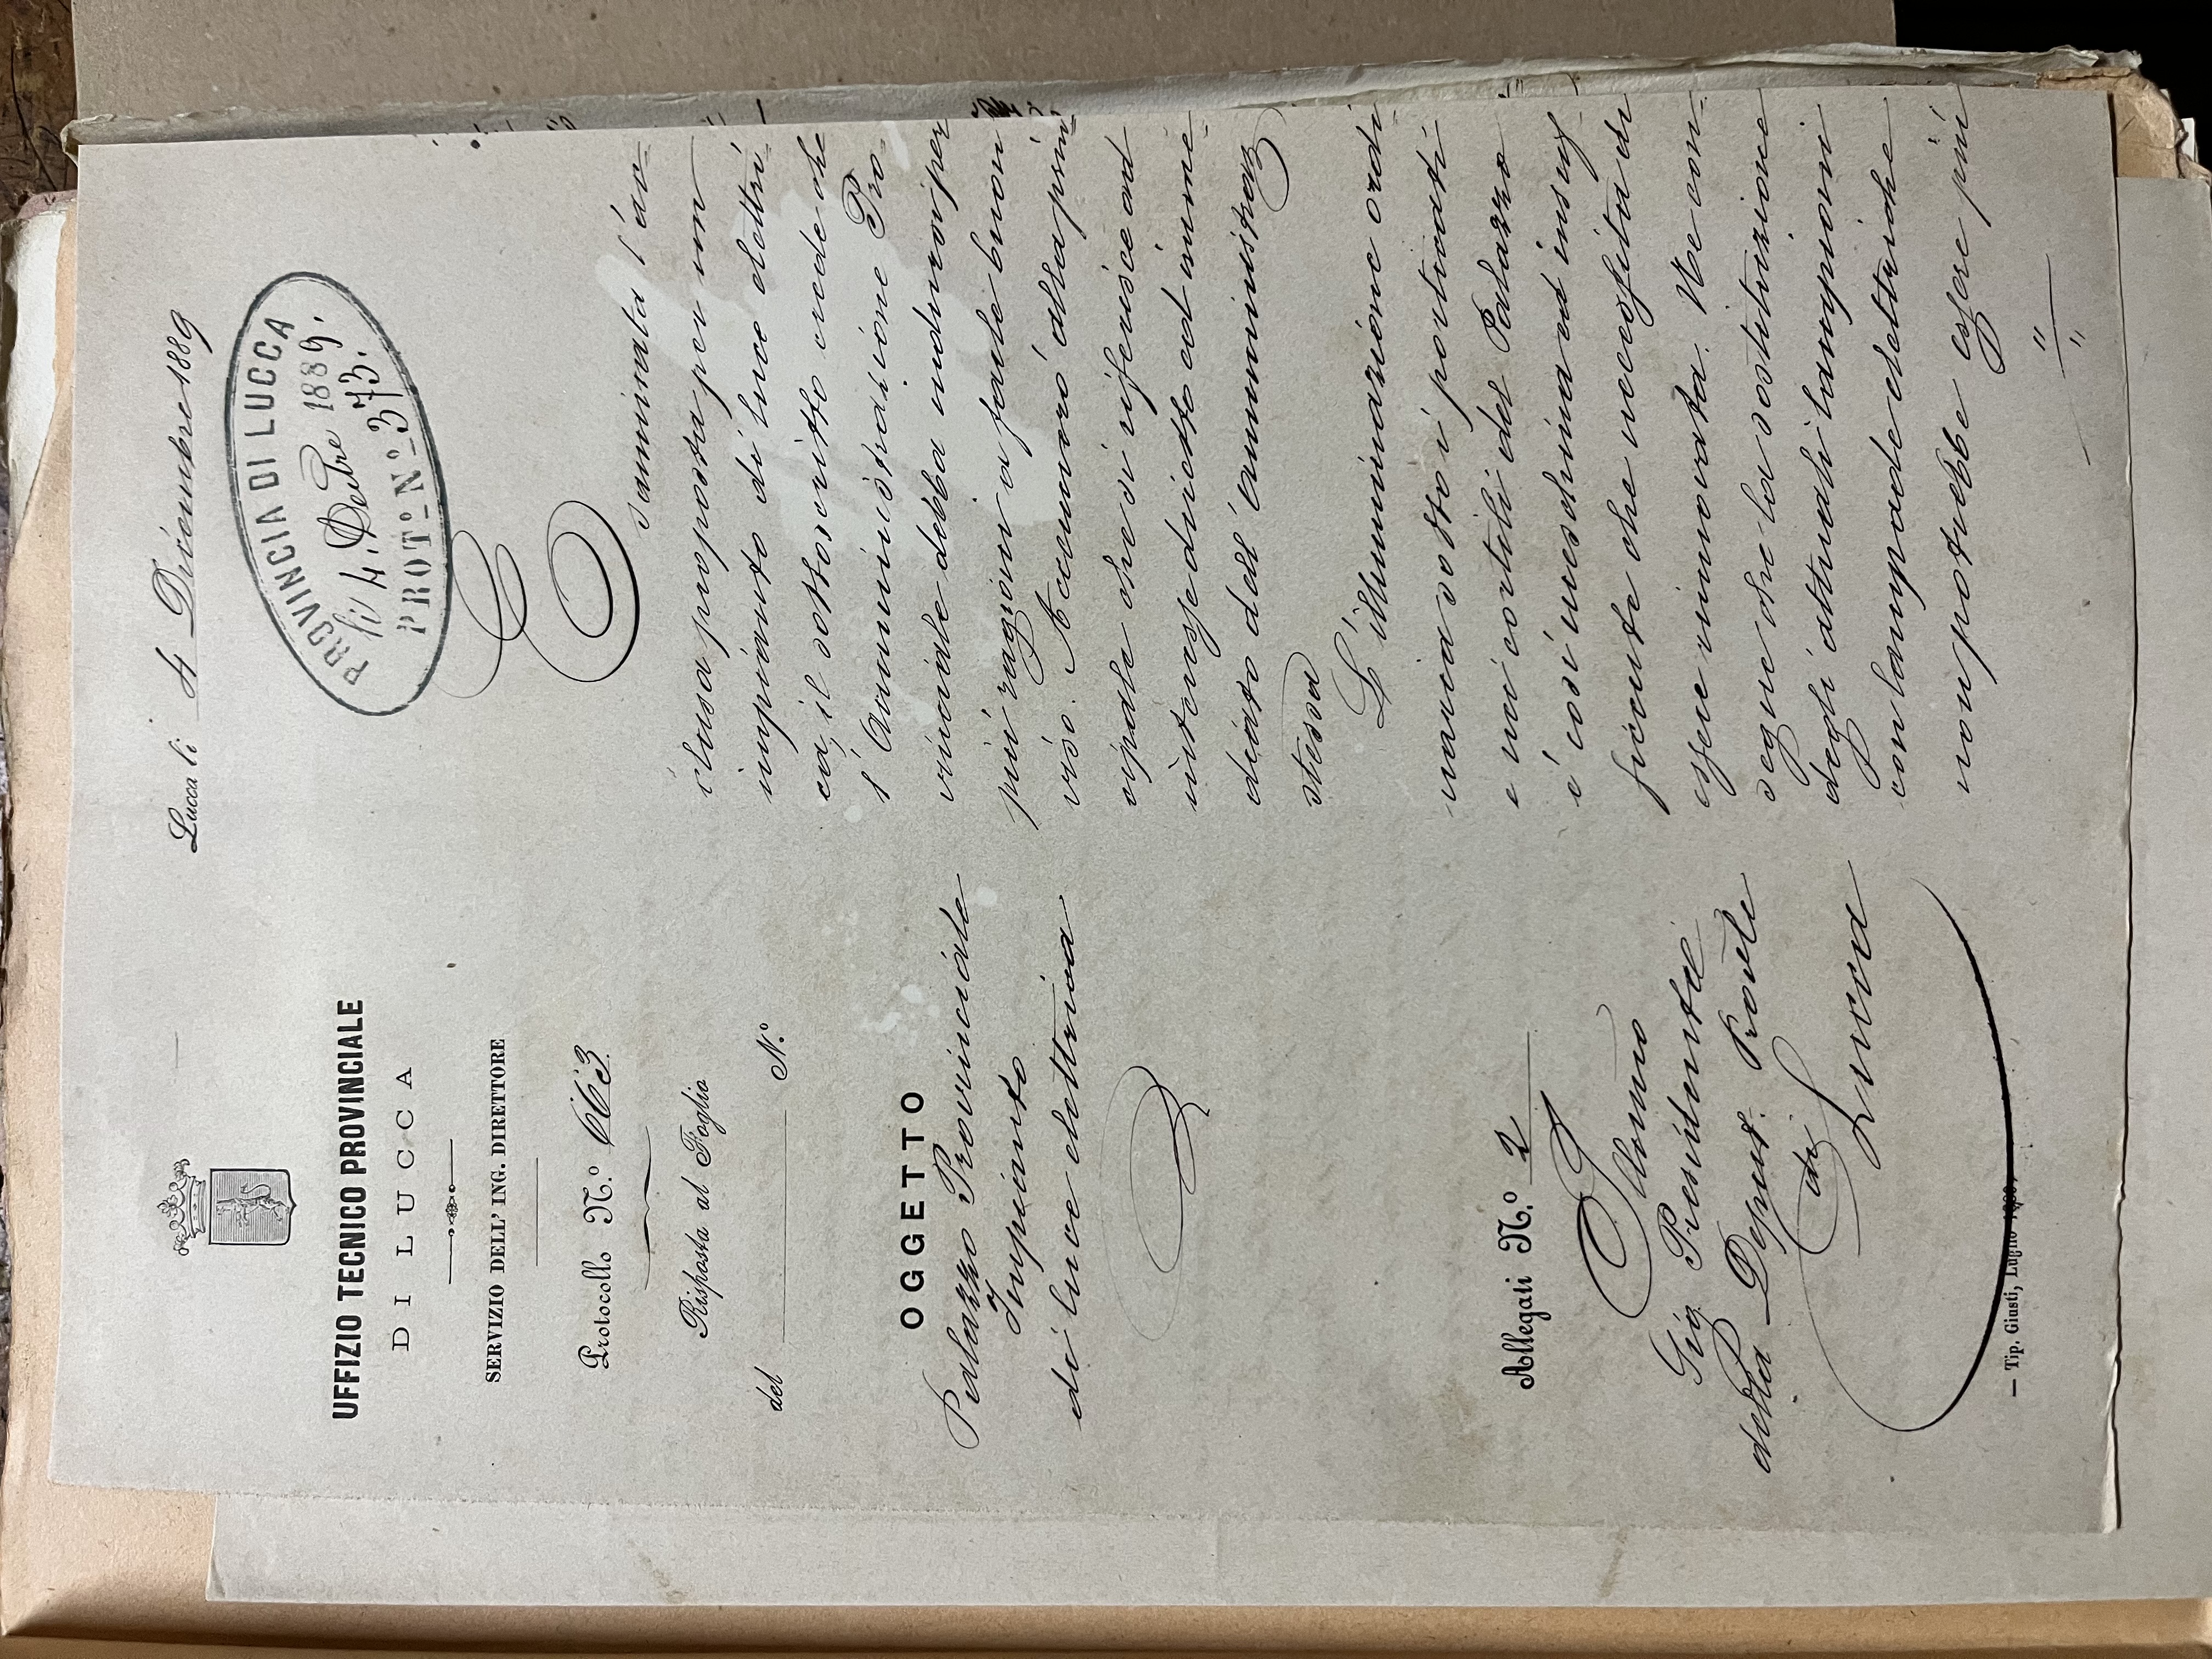 Lucca li 4 Dicembre 1889
PROVINCIA DI LUCCA
li 4. Dcbre 1889.
PROT.º N.º 373.
UFFIZIO TECNICO PROVINCIALE
DI LUCCA
SERVIZIO DELL' ING. DIRETTORE
Protocollo N.º 663
Risposta al Foglio
del N.º
OGGETTO
Palazzo Provinciale
Impianto
di luce elettrica
Allegati N.º 2
Illomo
Sig. Presidente
della Deput. Provle
di
Lucca
— Tip. Giusti, Luglio
Esaminata l'ac=
clusa proposta per un
impianto di luce elettri=
ca, il sottoscritto crede che
l'Amministrazione Pro=
vinciale debba indursi per
più ragioni a farle buon
viso. Accennerò alla prin=
cipale che si riferisce ad
interesse diretto ed imme=
diato dell'amministraz.
stessa
L'illuminazione ordi=
naria sotto i porticati
e nei cortili del Palazzo
è così meschina ed insuf=
ficiente che necessita di
essere rinnovata. Ne con=
segue che la sostituzione
degli attuali lampioni
con lampade elettriche
non potrebbe essere più